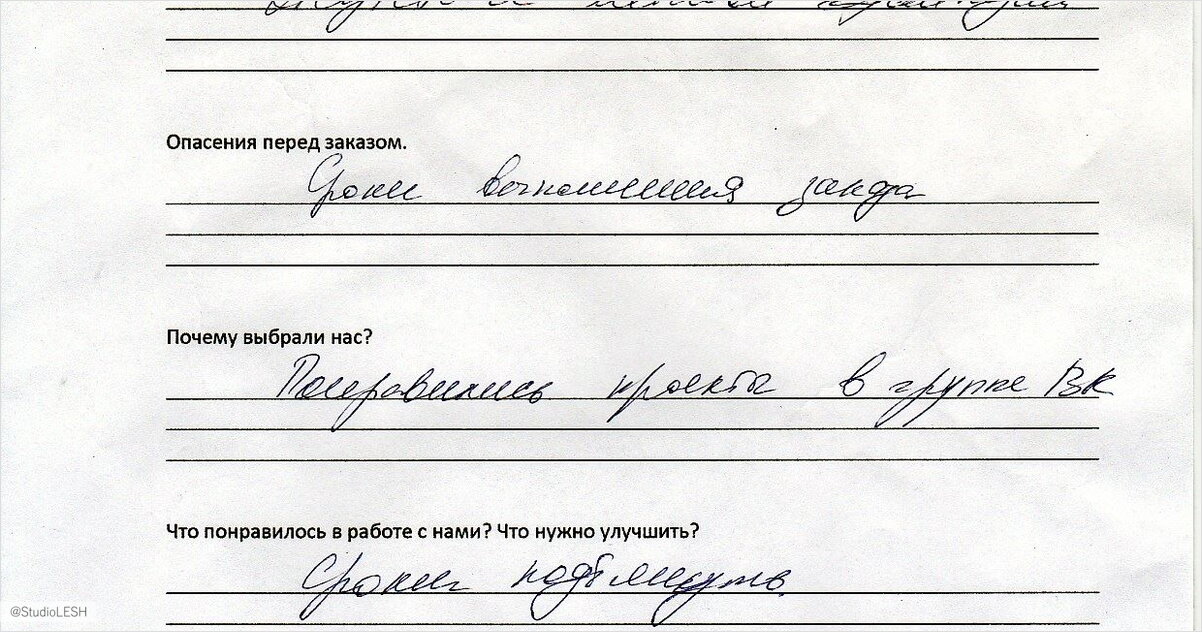 Опасения перед заказом.
Сроки выполнения заказа
Почему выбрали нас?
Понравились проекты в группе ВК
Что понравилось в работе с нами? Что нужно улучшить?
Сроки подтянуть.
@StudioLESH